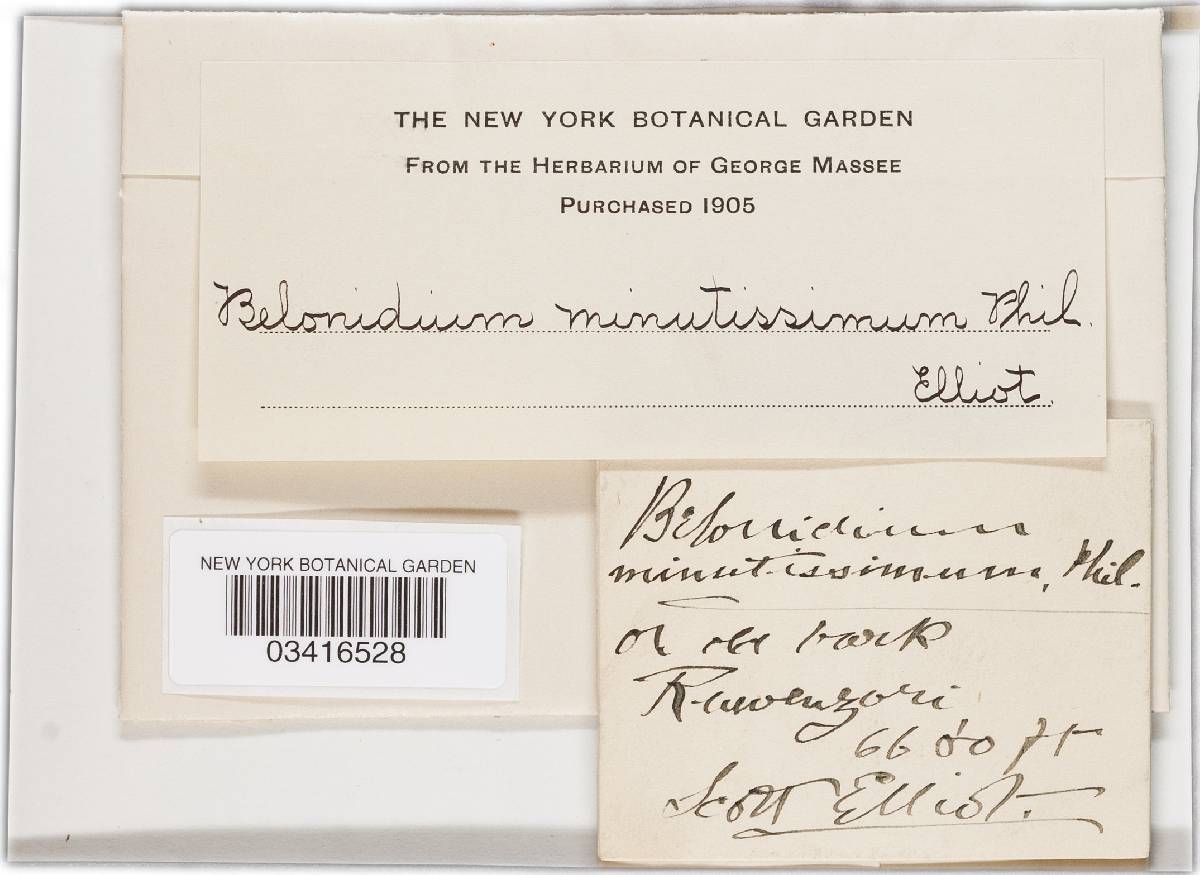 THE NEW YORK BOTANICAL GARDEN
FROM THE HERBARIUM OF GEORGE MASSEE
PURCHASED 1905
Belonidium minutissimum Phil.
Elliot.
NEW YORK BOTANICAL GARDEN
03416528
Belonidium
minutissimum, Phil.
bark
Ruwenzori
ft
Scott Elliot.